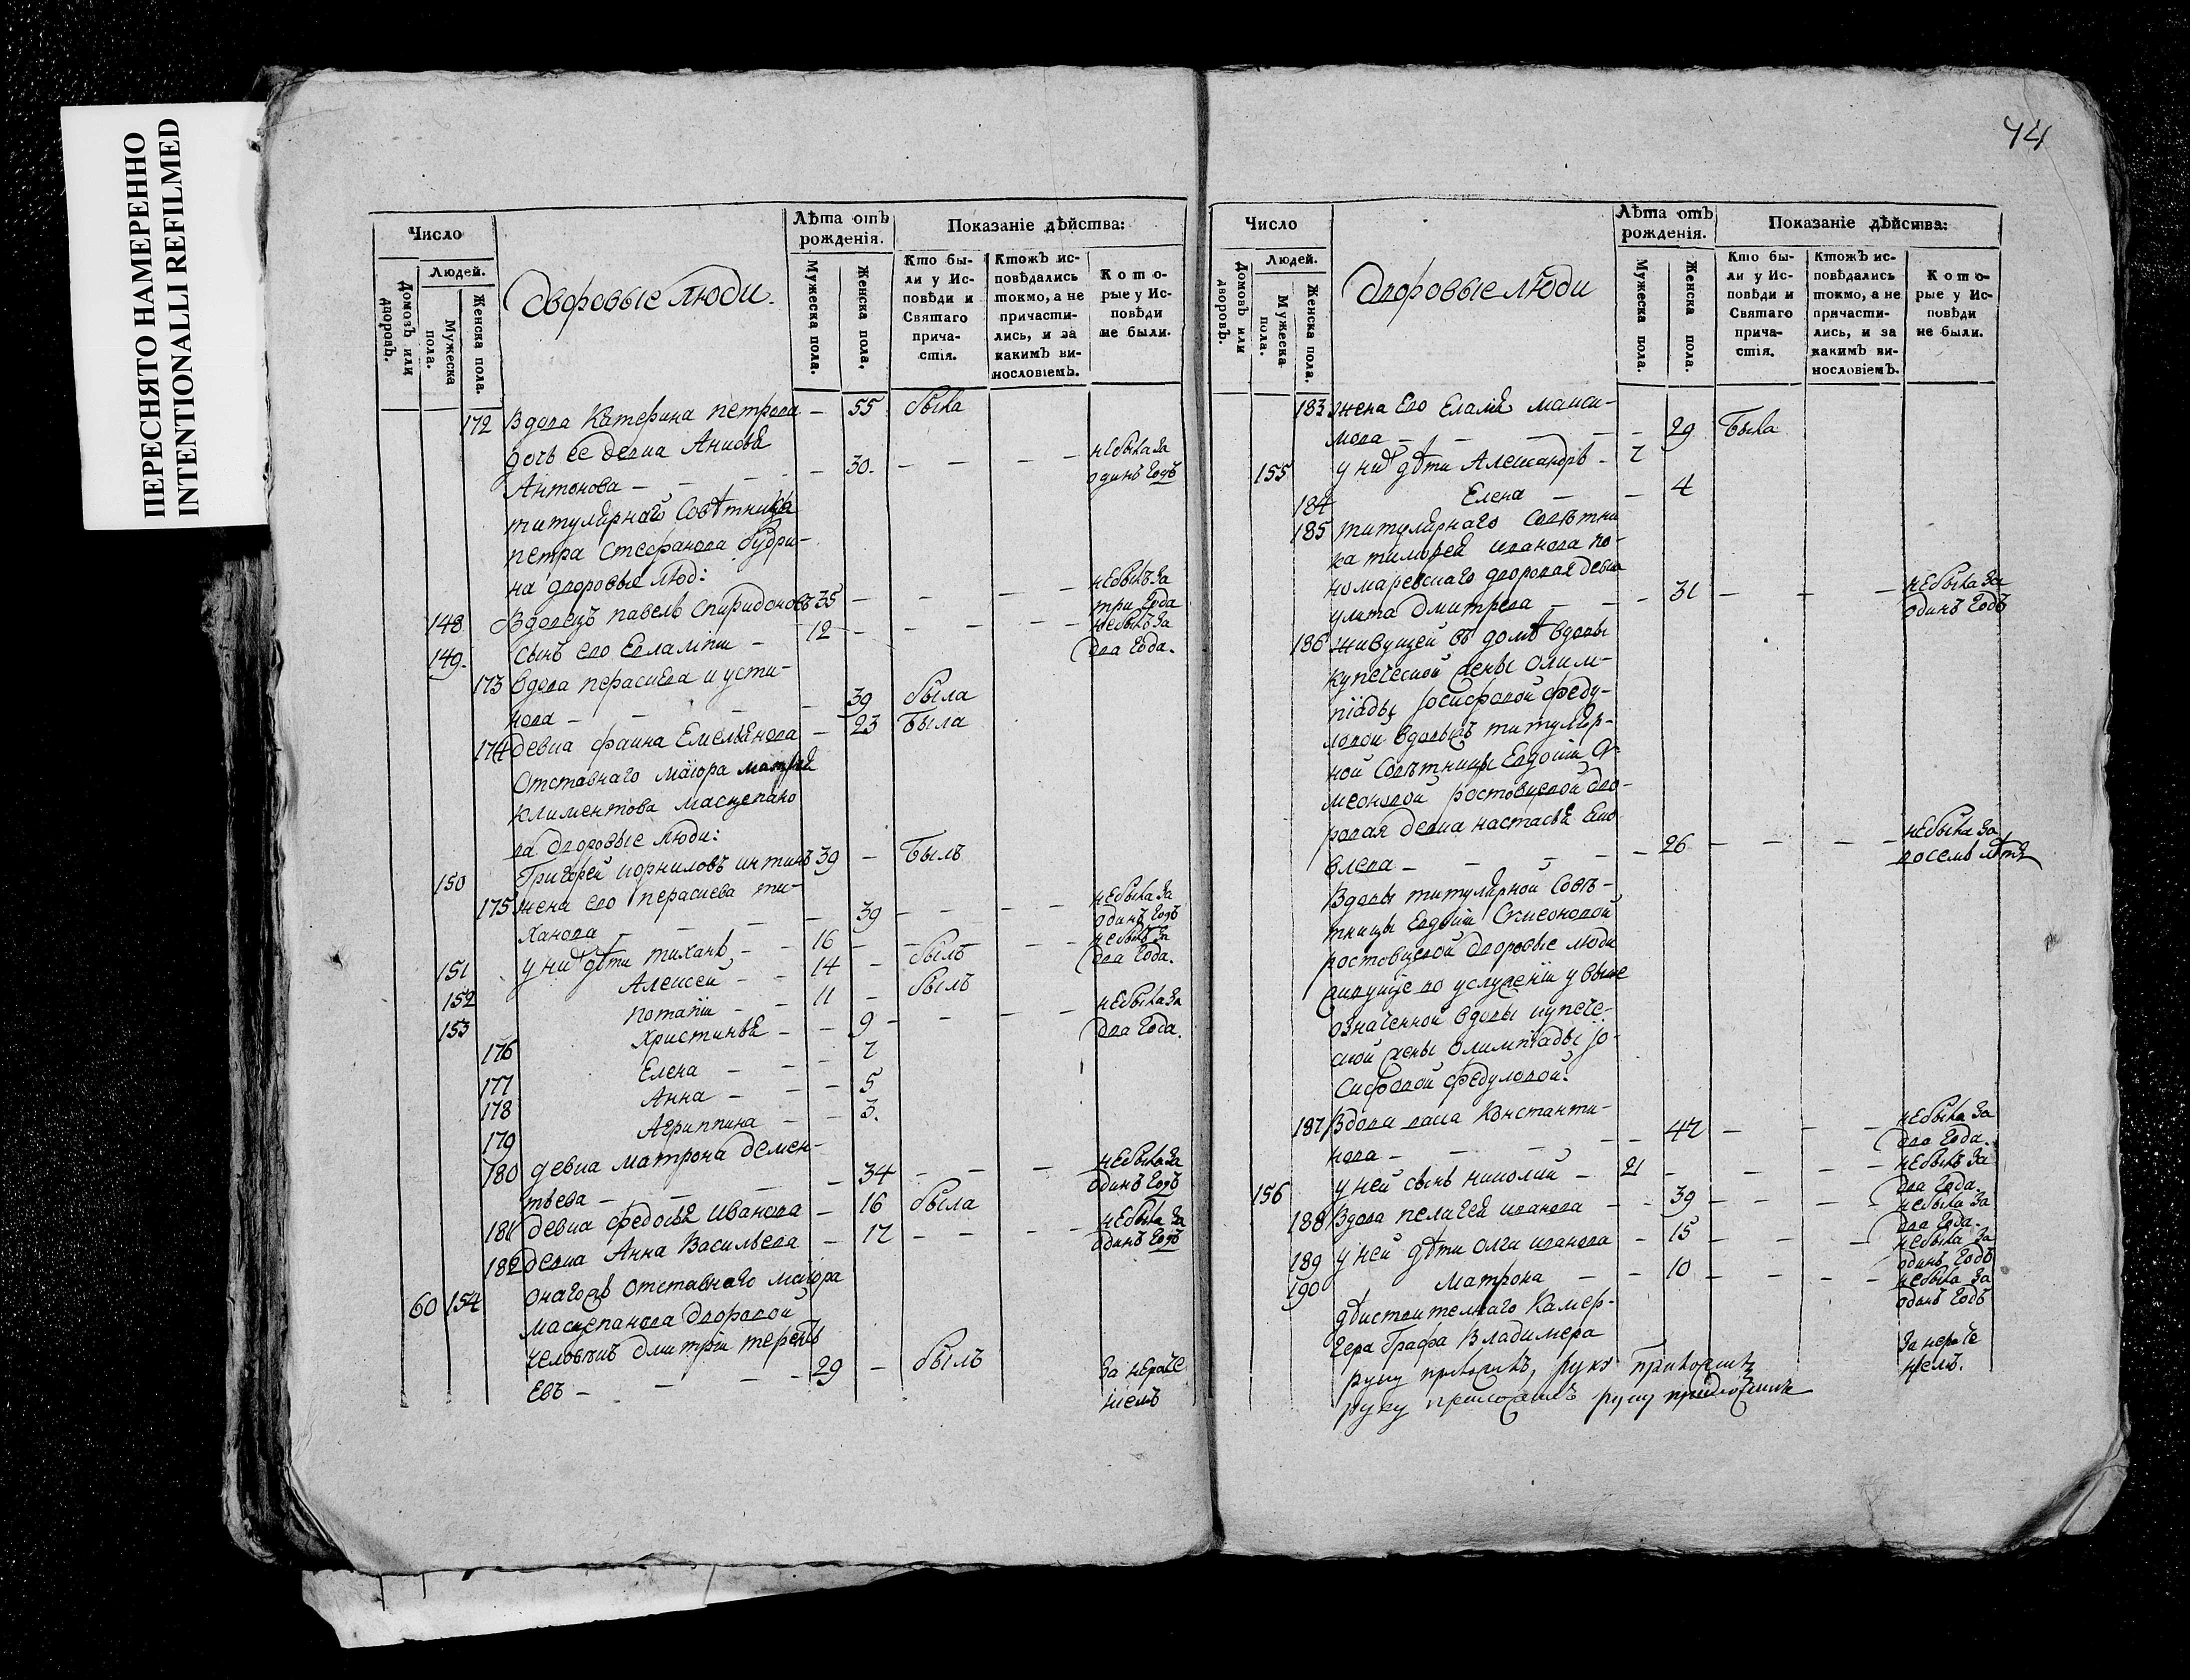 ПЕРЕСНЯТО НАМЕРЕННО
INTENTIONALLI REFILMED
Число
Людей.
Домовъ или дворовъ.
Мужеска пола.
Женска пола.
Дворовые люди.
Лѣта отъ рожденія.
Мужеска пола.
Женска пола.
Показаніе дѣйства:
Кто бы-
ли у Ис-
повѣди и
Святаго
прича-
стія.
Ктожъ ис-
повѣдались
токмо, а не
причасти-
лись, и за
какимъ ви-
нословіемъ.
Кото-
рые у Ис-
повѣди
не были.
172 Вдова Катерина петрова — 55 была
дочь ее девка Анисья небыла за
Антонова — — — 30. — — — одинъ годъ
титулярнаго Совѣтника
петра Стефанова
на дворовые люд:
148 Вдовецъ павелъ Спиридоновъ 35 — — — небылъ за три года
149. сынъ его Евлампи — 12 — — — небылъ за два года.
173 вдова парасковья усти-
нова — — — 39 была
174 девка фаина Емельянова — 23 Была
Отставнаго маіора
Климентова
ва дворовые люди:
150 Григорей корниловъ 39 — Былъ
175 жена его ти- небыла за
ханова — — — 39 — — — одинъ годъ
151 у них дѣти тиханъ — 16 — — — небылъ за два года.
152 Алексей — 14 — былъ
153 потапій — 11 — былъ
176 Христинья — — 9 — — — небыла за два года.
177 Елена — — 7
178 Анна — — 5
179 Агриппина — — 3.
180 девка матрона демен- небыла за
тьева — — — 34 — — — одинъ годъ
181 девка федосья Иванова — 16 была
182 девка Анна Васильева — 17 — — — небыла за одинъ годъ
60 154 онагожъ отставнаго маіора
дворовой
человѣкъ дмитрій терень
евъ — — — 29 — былъ
за нераче
ніемъ
74
Число
Людей.
Домовъ или дворовъ.
Мужеска пола.
Женска пола.
Дворовые люди
Лѣта отъ рожденія.
Мужеска пола.
Женска пола.
Показаніе дѣйства:
Кто бы-
ли у Ис-
повѣди и
Святаго
прича-
стія.
Ктожъ ис-
повѣдались
токмо, а не
причасти-
лись, и за
какимъ ви-
нословіемъ.
Кото-
рые у Ис-
повѣди
не были.
183 жена его макси-
мова — — — 29 Была
155 у них дѣти Александръ — 7
184 Елена — — 4
185 титулярнаго Совѣтни
ка тимофея иванова по-
номаревскаго дворовая девка
улита дмитрева — — — 31 — — — небыла за одинъ годъ
186 живущей въ домѣ вдовы
купеческой жены олим-
піады Іосифовой феду-
ловой вдовы титуляр-
ной Совѣтницы Евдокіи
ростовцевой дво-
ровая девка настасья
— — — 26 — — — небыла за
восемь лѣтъ
Вдовы титулярной Совѣ-
тницы Евдокіи
ростовцевой дворовые люди
живущіе по услуженіи у выше
означенной вдовы купече-
ской жены олимпіады Іо-
сифовой федуловой:
187 Вдова Константи-
нова — — — 47 — — — небыла за два года.
156 у ней сынъ николай — 21 — — — небылъ за два года.
188 Вдова пелагея иванова — — 39 — — — небыла за два года.
189 у ней дѣти олга иванова — 15 — — — небыла за одинъ годъ
190 матрона — — 10 — — — небыла за одинъ годъ
дѣйствителнаго Камер-
гера Графа Владимера
за нераче
ніемъ.
руку приложилъ, руку приложилъ
руку приложилъ руку приложилъ